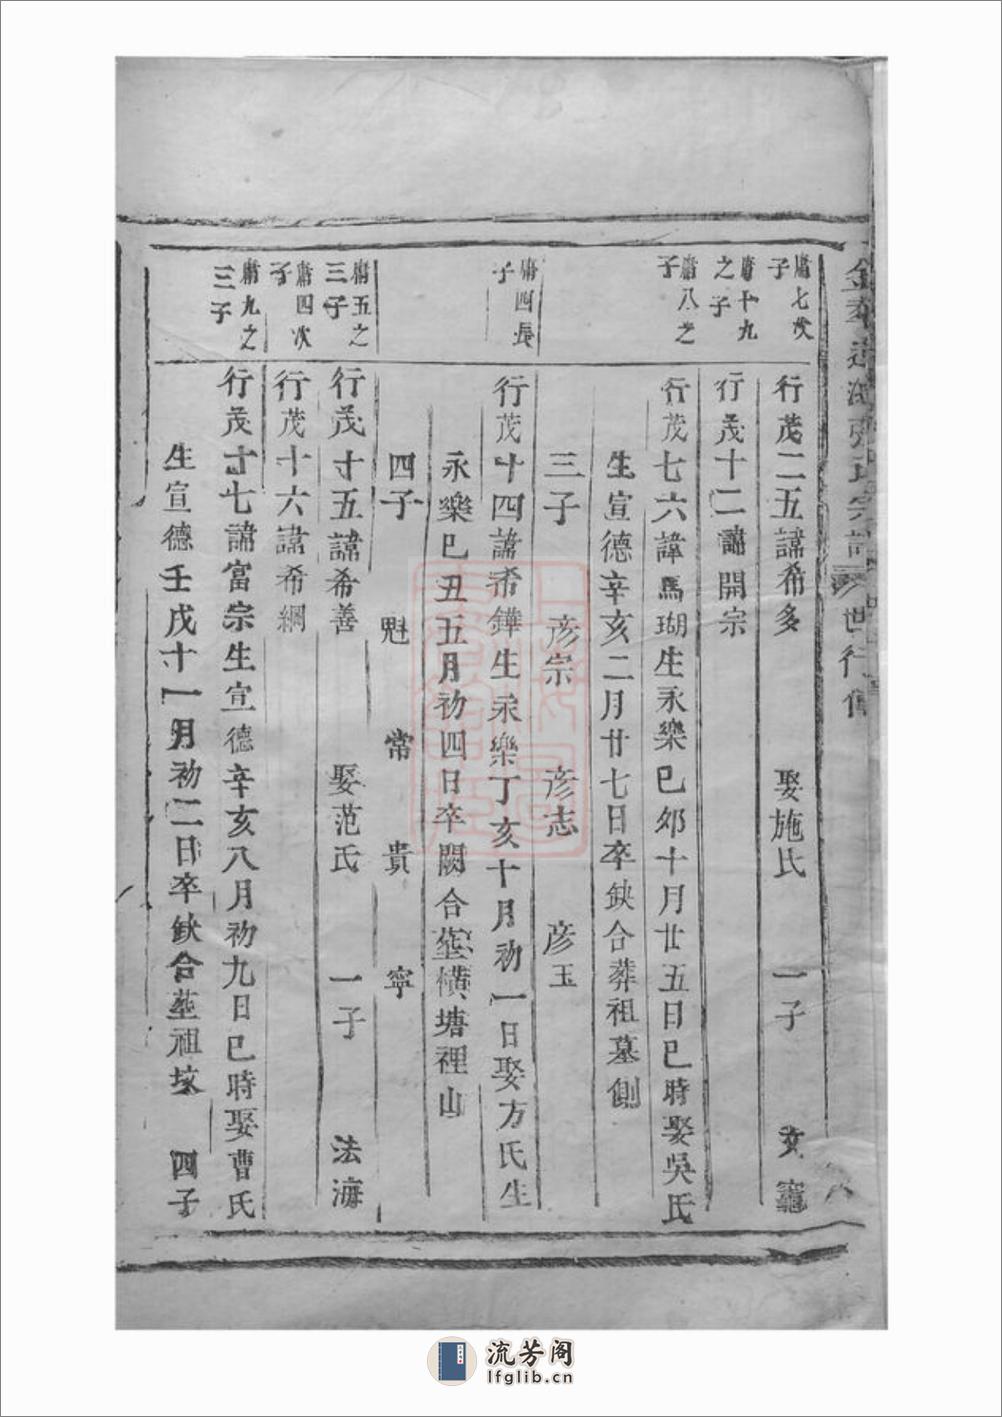 世行傳
庸七次
子
行茂二五諱希多 娶施氏 一子 文竈
庸十九
之子
行茂十二諱開宗
庸八之
子
行茂七六諱馬瑚生永樂己卯十月廿五日巳時娶吳氏
生宣德辛亥二月廿七日卒缺合葬祖墓側
三子 彦宗 彦志 彦玉
庸四長
子
行茂十四諱希鏵生永樂丁亥十月初一日娶方氏生
永樂己丑五月初四日卒闕合塟橫塘裡山
四子 魁 常 貴 寧
庸五之
三子
行茂十五諱希善 娶范氏 一子 法海
庸四次
子
行茂十六諱希綱
庸九之
三子
行茂十七諱富宗生宣德辛亥八月初九日巳時娶曹氏
生宣德壬戌十一月初二日卒缺合塟祖坟 四子
流芳阁
lfglib.cn